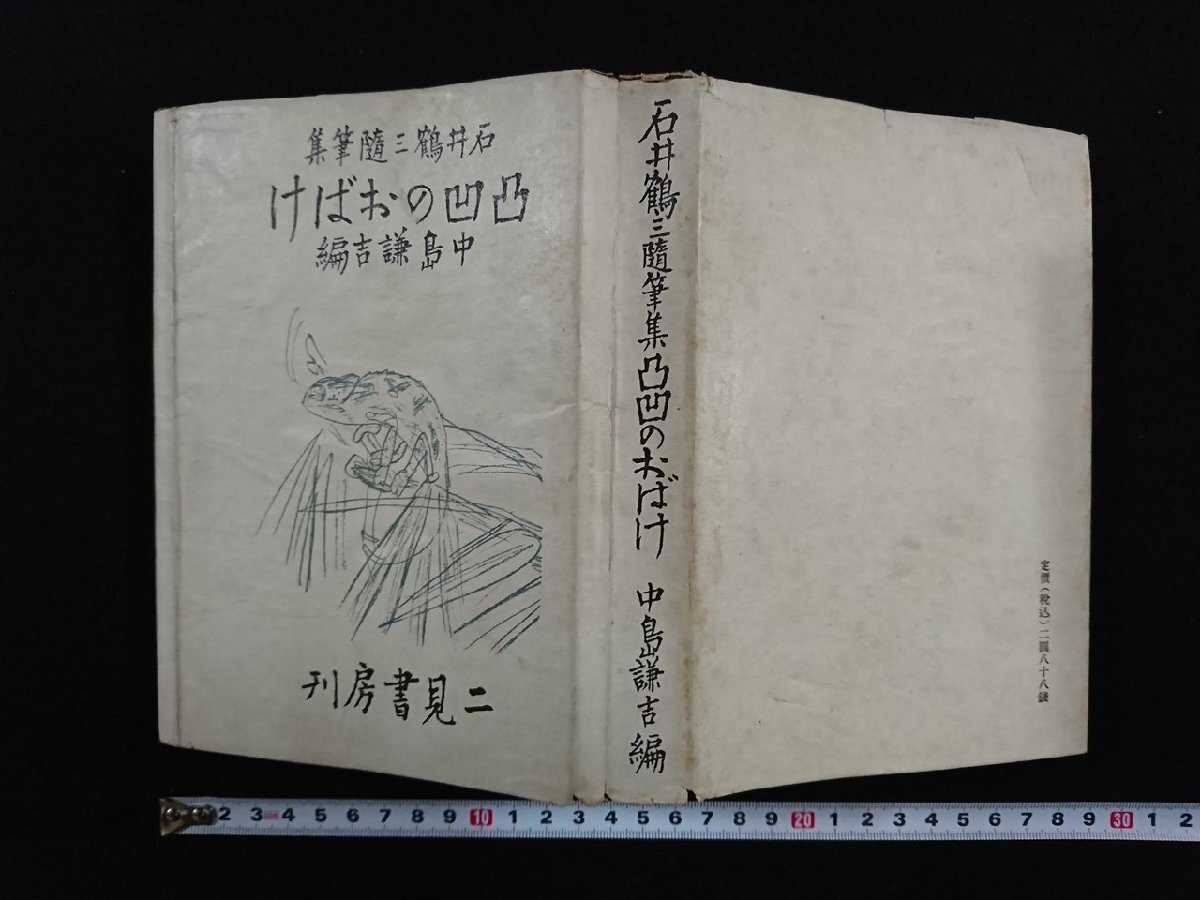 石井鶴三隨筆集
凸凹のおばけ
中島謙吉編
二見書房刊
石井鶴三隨筆集 凸凹のおばけ 中島謙吉編
定價(税込)二圓八十八錢
2 3 4 5 6 7 8 9 10 1 2 3 4 5 6 7 8 9 20 1 2 3 4 5 6 7 8 9 30 1 2